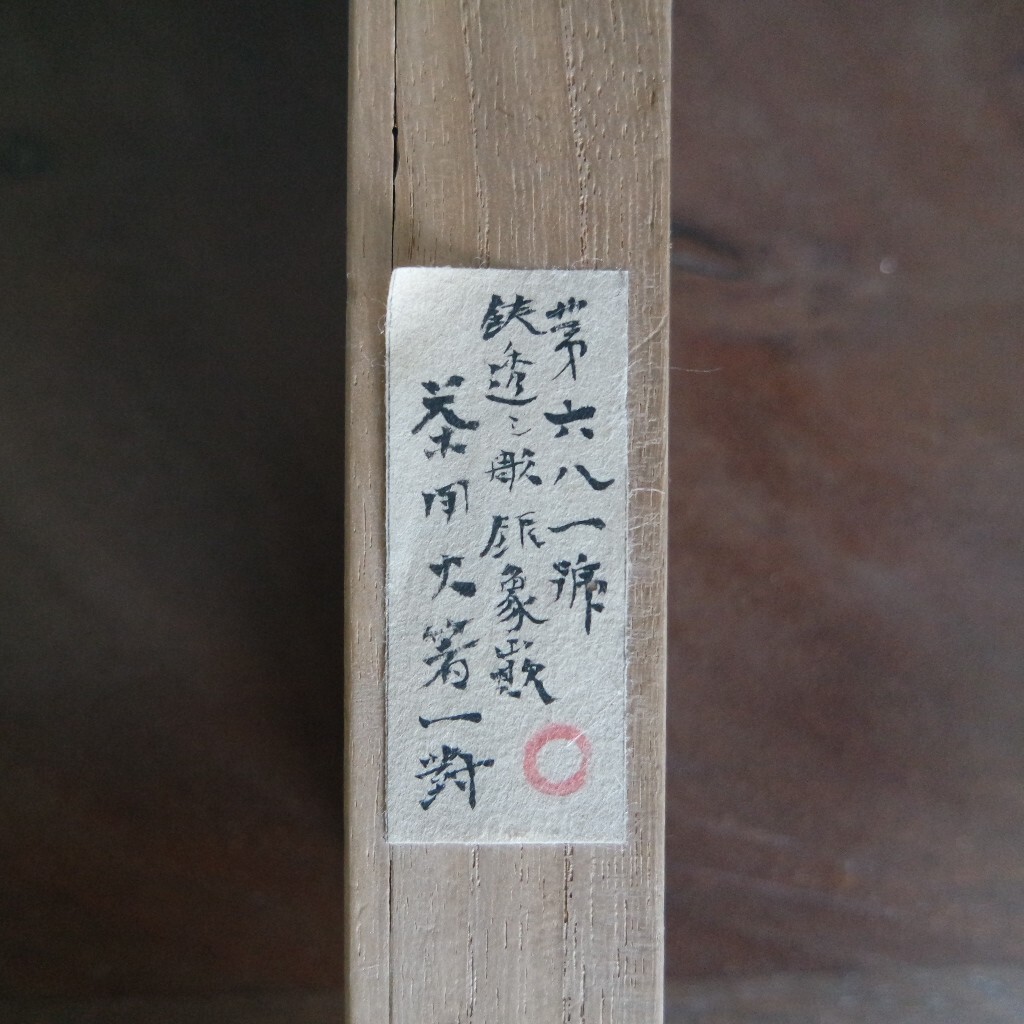 第六八一號
鉄透シ彫銀象嵌
茶用火箸一對